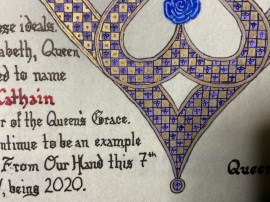 ese ideals.
abeth, Queen
ed to name
Cathain
r of the Queen's Grace.
ntinue to be an example
From Our Hand this 7th
, being 2020.
Quee